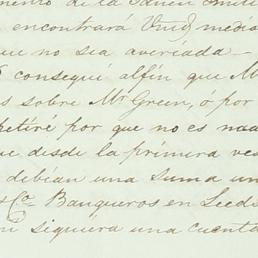 encontrará Vmd medio
que no sea averiada —
consequé alfin que M
s sobre Mr Green, ó por
retiré por que no es nad
e desde la primera ves
debian una suma un
&Co. Banqueros en Leeds
ni siquiera una cuenta